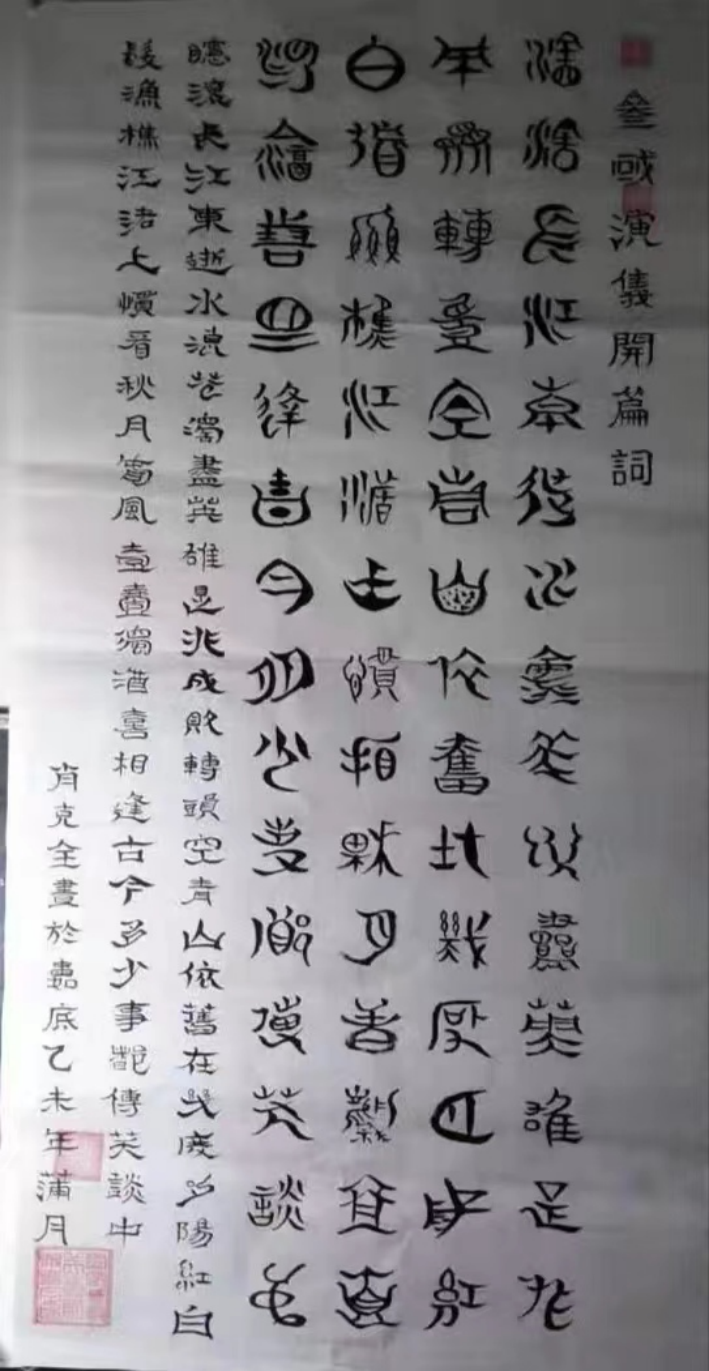 叁國演儀開篇詞
滾滾長江東逝水浪花淘盡英雄是非
成敗轉頭空青山依舊在幾度夕陽紅
白髮漁樵江渚上慣看秋月春風壹壺
濁酒喜相逢古今多少事都傳笑談中
滾滾長江東逝水浪花濁盡英雄是非成敗轉頭空青山依舊在幾度夕陽紅白
髮漁樵江渚上慣看秋月春風壹壺濁酒喜相逢古今多少事都傳笑談中
肖克全書於嘉底乙未年蒲月